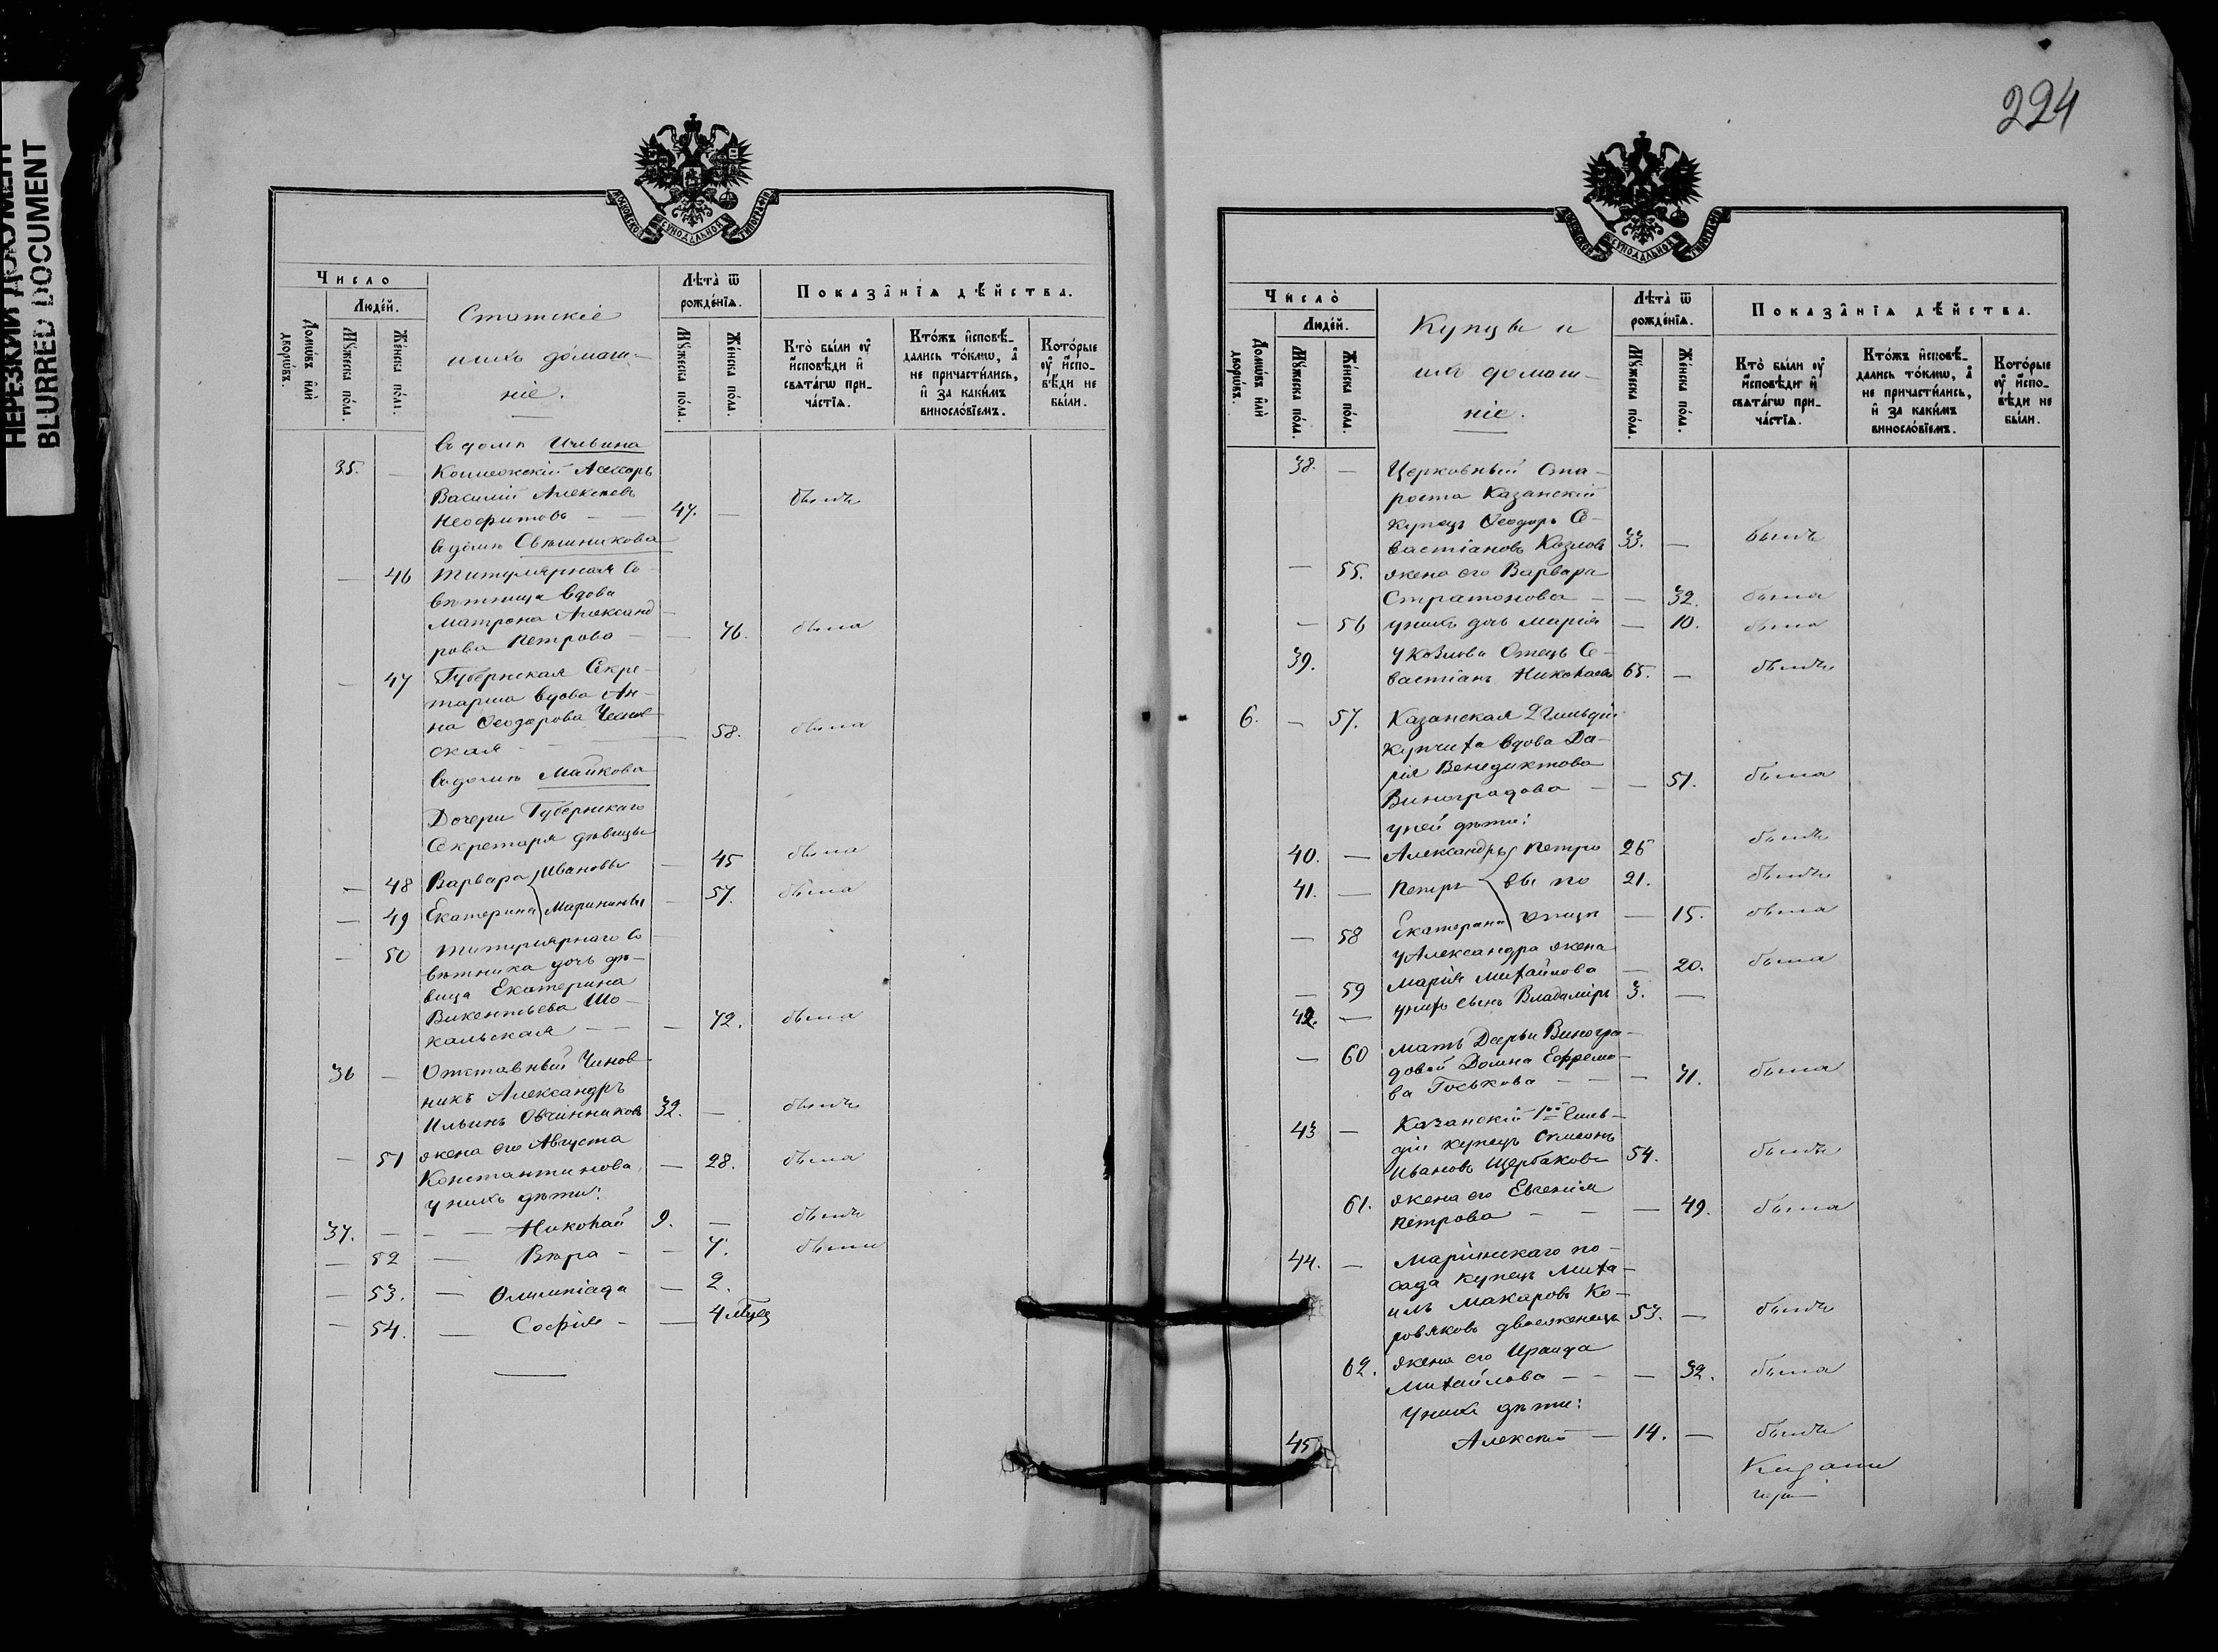 НЕРЕЗКИЙ ДОКУМЕНТ
BLURRED DOCUMENT
МОСКОВСКОЙ СѴНОДАЛЬНОЙ ТИПОГРАФІИ
Число
Людей.
Домѡвъ или дворѡвъ.
Мꙋжеска пола.
Женска пола.
Статскіе
и ихъ домаш-
ніе.
Лѣта ѿ рожденїѧ.
Мꙋжеска пола.
Женска пола.
Показанїѧ дѣйства.
Кто были оу исповѣди и свѧтагѡ причастїѧ.
Ктожъ исповѣдались токмѡ, а не причастились, и за какимъ винословїемъ.
Которые оу исповѣди не были.
Въ домѣ Ильина
35. — Коллежскій Ассесоръ
Василій Алексѣевъ
Неофитовъ — 47. — былъ
Въ домѣ Свѣшникова
— 46 Титулярная Со-
вѣтница вдова
Матрона Александ-
рова Петрова — — 76. была
— 47 Губернская Секре-
тарша вдова Ан-
на Ѳеодорова
ская — — 58. была
Въ домѣ Майкова
Дочери Губернскаго
Секретаря дѣвицы
— 48 Варвара Ивановы — 45 была
— 49 Екатерина Маринины — 57. была
— 50 Титулярнаго Со-
вѣтника дочь дѣ-
вица Екатерина
Викентьева Шо-
кальская — — 72. была
36 — Отставный Чинов-
никъ Александръ
Ильинъ Овчинниковъ 32. — былъ
— 51 жена его Августа
Константинова — 28. была
у нихъ дѣти:
37. — — Николай 9. — былъ
— 52 — Вѣра — — 7. была
— 53. — Олимпіада — 2.
— 54. — Софія — — 4 мѣся
224
МОСКОВСКОЙ СѴНОДАЛЬНОЙ ТИПОГРАФІИ
Число
Людей.
Домѡвъ или дворѡвъ.
Мꙋжеска пола.
Женска пола.
Купцы и
ихъ домаш-
ніе.
Лѣта ѿ рожденїѧ.
Мꙋжеска пола.
Женска пола.
Показанїѧ дѣйства.
Кто были оу исповѣди и свѧтагѡ причастїѧ.
Ктожъ исповѣдались токмѡ, а не причастились, и за какимъ винословїемъ.
Которые оу исповѣди не были.
38. — Церковный Ста-
роста Казанскій
купецъ Ѳеодоръ Се-
вастіановъ Козловъ 33. — былъ
— 55. жена его Варвара
Стратонова — — 32. была
— 56 у нихъ дочь Марія — 10. была
39. У Козлова Отецъ Се-
вастіанъ Николаевъ 65. — былъ
6. — 57. Казанская 2 Гильдіи
купчиха вдова Да-
рія Венедиктова
Виноградова — — 51. была
у ней дѣти:
40. — Александръ Петро 26 былъ
41. — Петръ вы по 21. былъ
— 58 Екатерина отцѣ — 15. была
у Александра жена
— 59 Марія Михайлова — 20. была
42. — у нихъ сынъ Владиміръ 3. —
— 60 Мать Дарьи Виногра-
довой Домна Ефремо-
ва Госькова — — 71. была
43 — Казанскій 1ой Гиль-
діи купецъ Симеонъ
Ивановъ Щербаковъ 54. былъ
61. жена его Евгенія
Петрова — — — 49. была
44. — Маріинскаго по-
сада купецъ Миха-
илъ Макаровъ Ко-
ровяковъ двоеженецъ 53. — былъ
62. жена его Ираида
Михайлова — — — 32. была
У нихъ дѣти:
45 Алексій — 14. — былъ